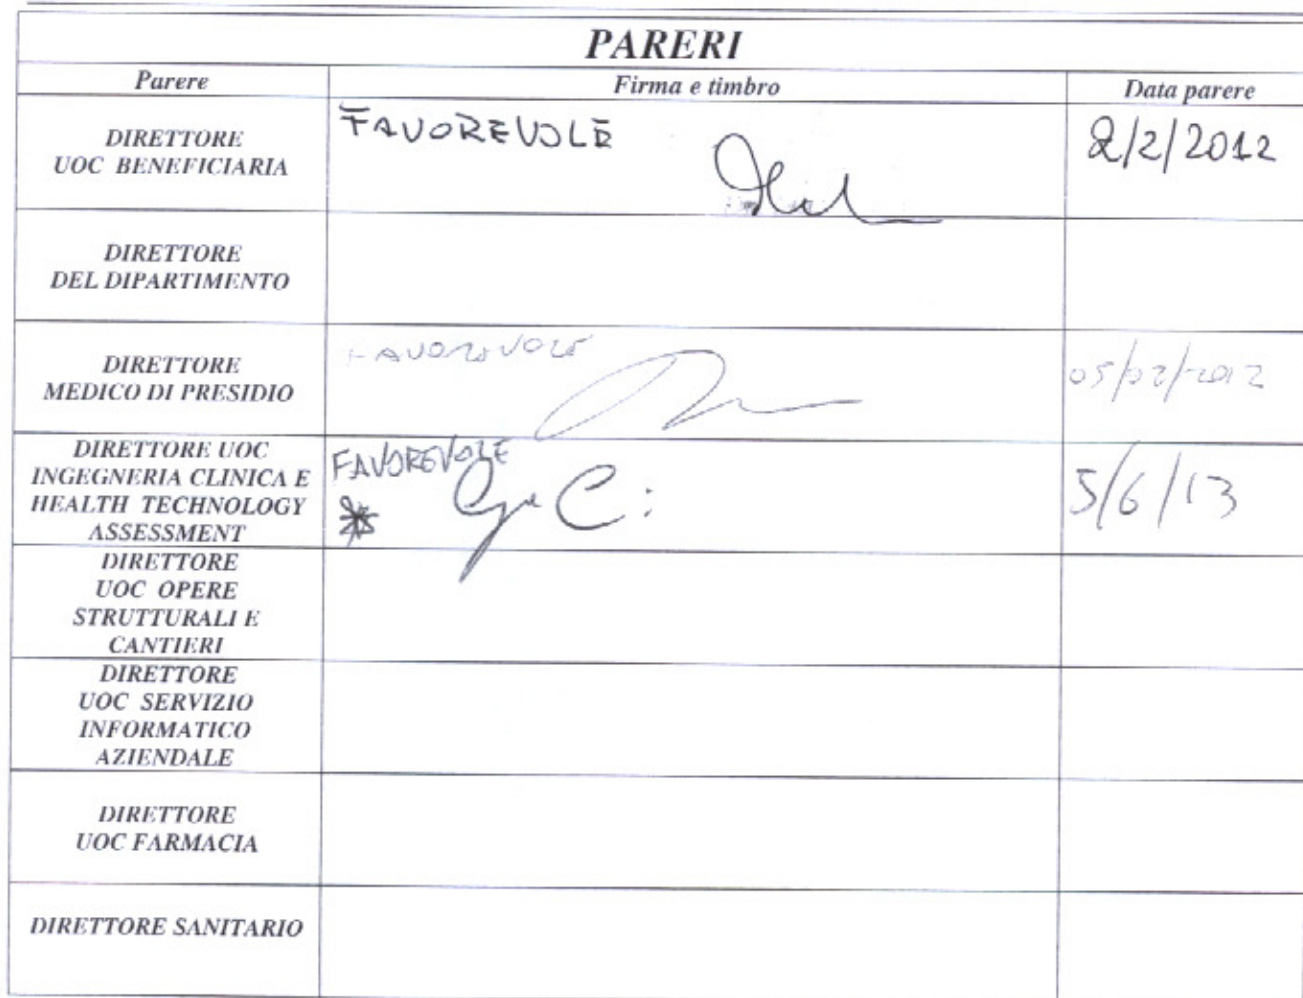 PARERI
Parere Firma e timbro Data parere
DIRETTORE
UOC BENEFICIARIA
FAVOREVOLE
2/2/2012
DIRETTORE
DEL DIPARTIMENTO
DIRETTORE
MEDICO DI PRESIDIO
FAVOREVOLE
05/02/2012
DIRETTORE UOC
INGEGNERIA CLINICA E
HEALTH TECHNOLOGY
ASSESSMENT
FAVOREVOLE
*
5/6/13
DIRETTORE
UOC OPERE
STRUTTURALI E
CANTIERI
DIRETTORE
UOC SERVIZIO
INFORMATICO
AZIENDALE
DIRETTORE
UOC FARMACIA
DIRETTORE SANITARIO